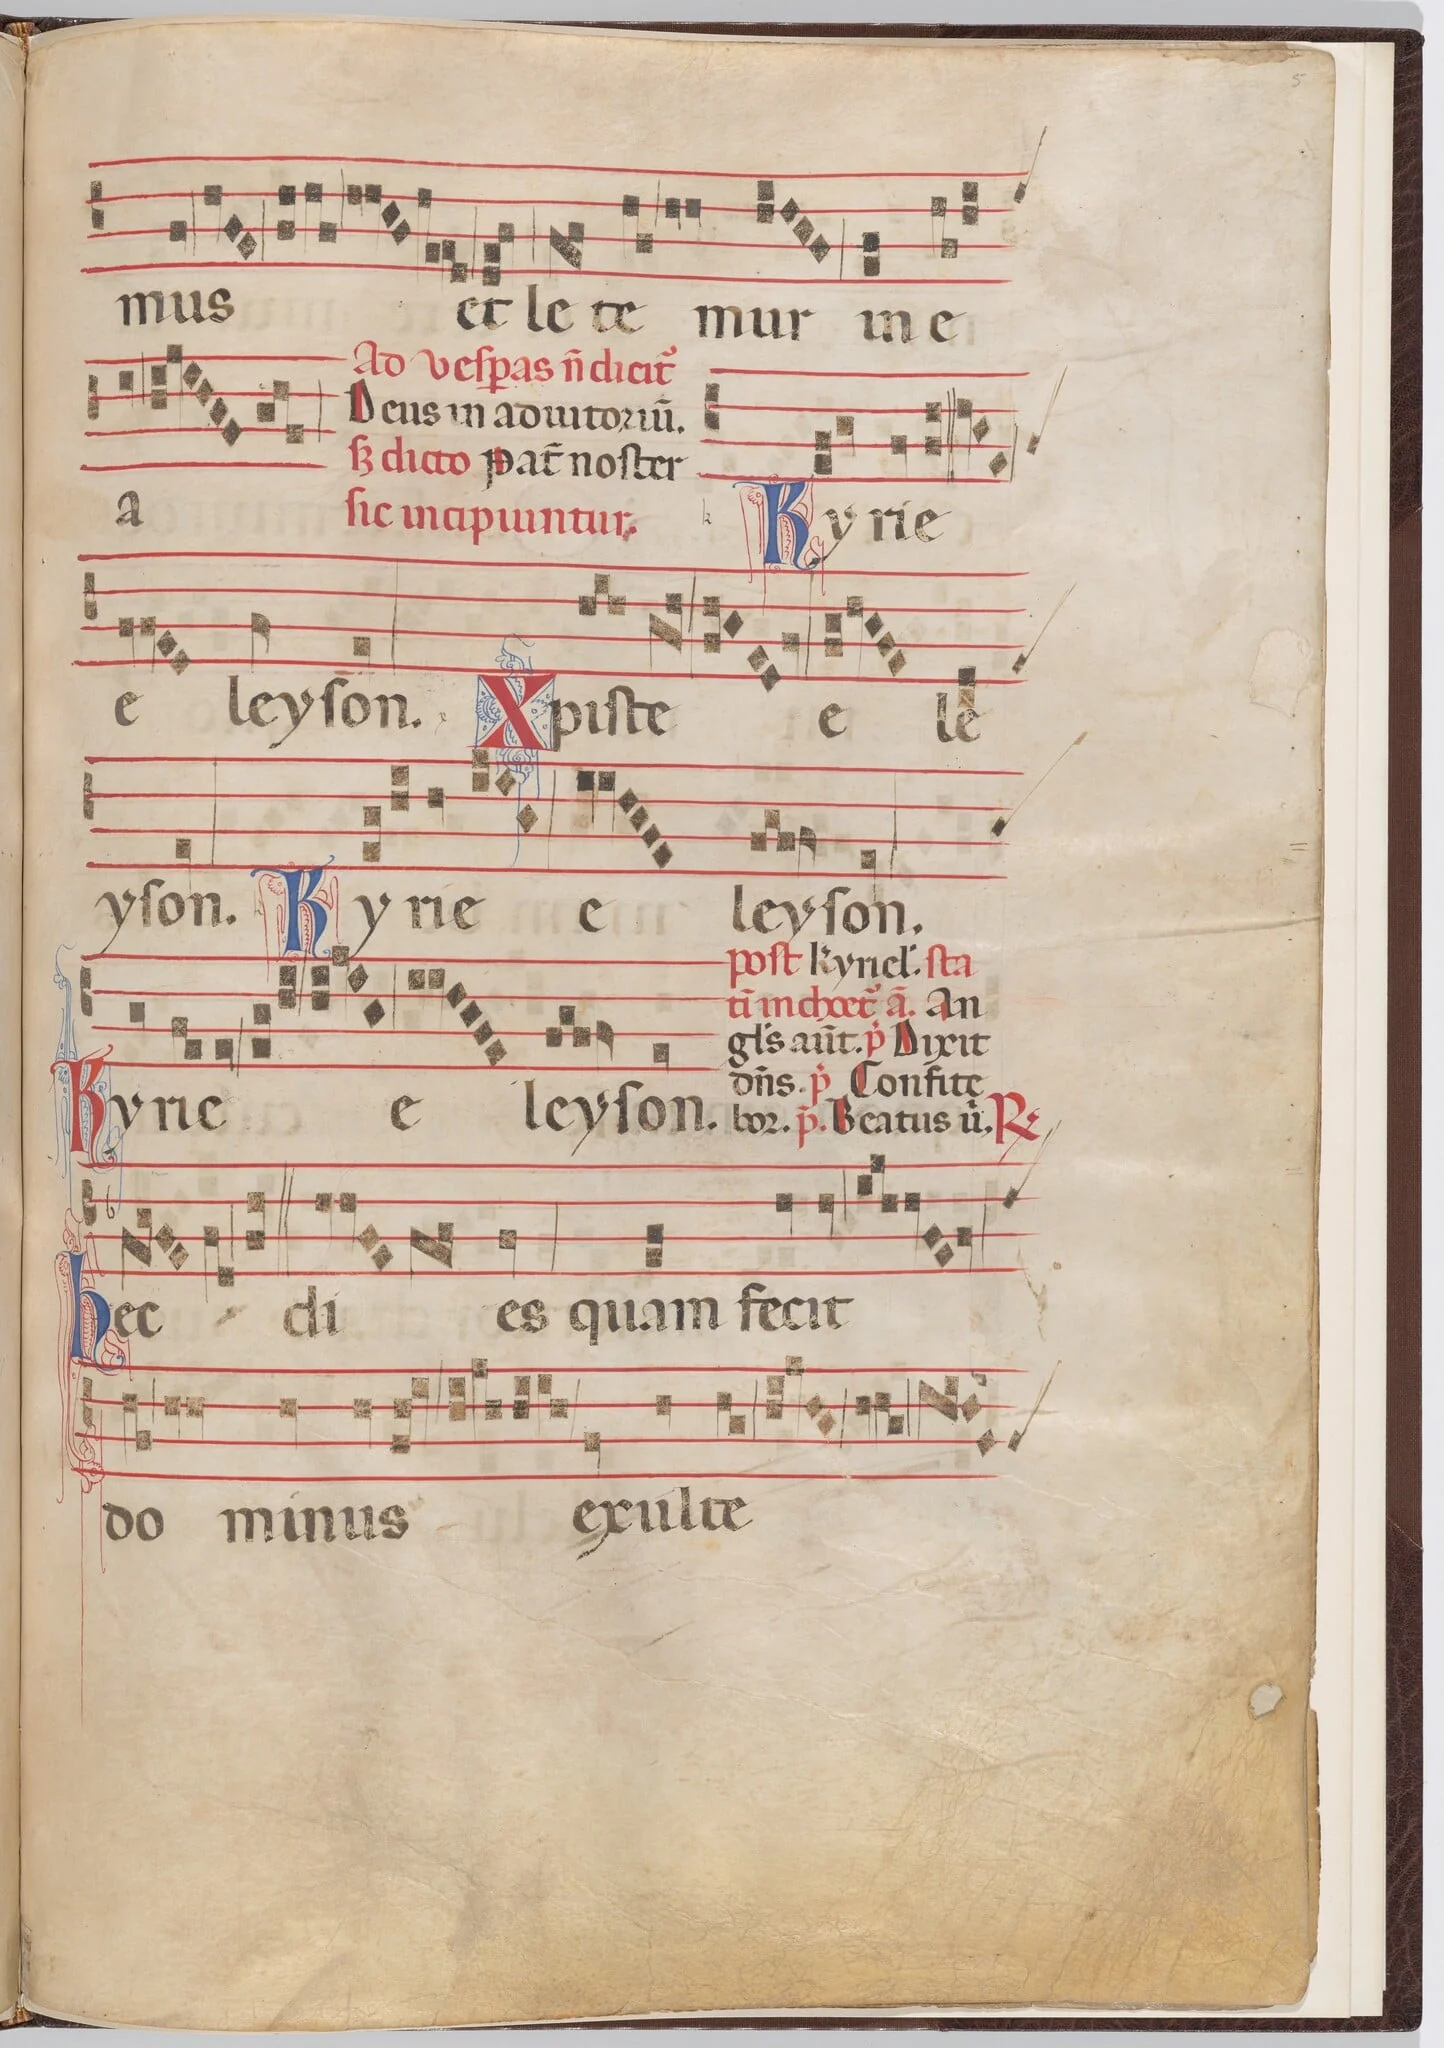 5
mus et le te mur in e
Ad vesꝑas n̄ dicit᷑
Deus in adiutoriū.
sꝫ dicto pat̄ noster
a sic incipiuntur. k Kyrie
e leyson. Xpiste e le
yson. Kyrie e leyson.
post kyriel'. sta
tī in choet᷑ ā. An
Kyrie e leyson.
gl's aūt. p̄ Dixit
dn̄s. p̄ Confite
bor. p̄. Beatus ū. R
hec di es quam fecit
do minus exulte